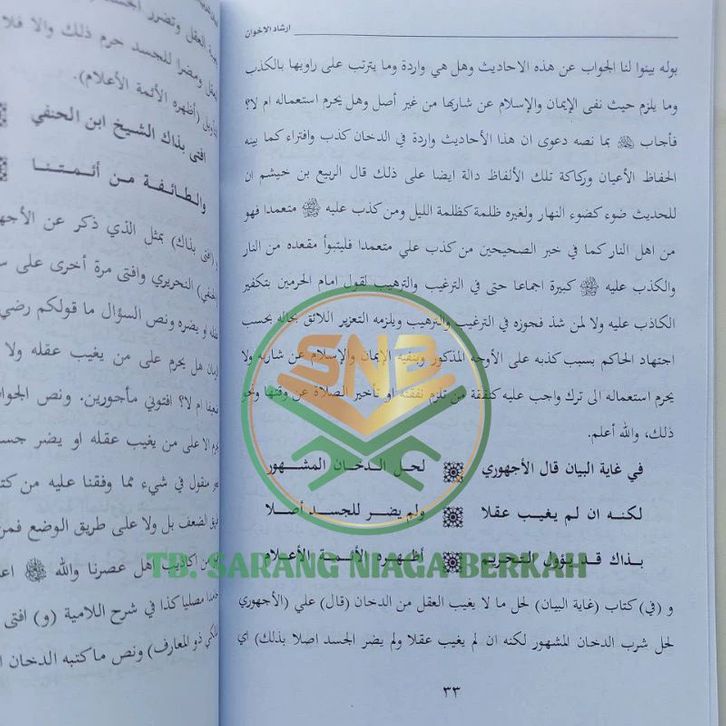 ارشاد الاخوان
بوله بينوا لنا الجواب عن هذه الاحاديث وهل هي واردة وما يترتب على راويها بالكذب
وما يلزم حيث نفى الإيمان والإسلام عن شاربها من غير أصل وهل يحرم استعماله ام لا؟
فأجاب ﷺ بما نصه دعوى ان هذا الأحاديث واردة في الدخان كذب وافتراء كما بينه
الحفاظ الأعيان وركاكة تلك الألفاظ دالة ايضا على ذلك قال الربيع بن خيشم ان
للحديث ضوء كضوء النهار ولغيره ظلمة كظلمة الليل ومن كذب عليه ﷺ متعمدا فهو
من اهل النار كما في خبر الصحيحين من كذب علي متعمدا فليتبوأ مقعده من النار
والكذب عليه ﷺ كبيرة اجماعا حتى في الترغيب والترهيب لقول امام الحرمين بتكفير
الكاذب عليه ولا لمن شذ فجوزه في الترغيب والترهيب ويلزمه التعزير اللائق بحاله بحسب
اجتهاد الحاكم بسبب كذبه على الأوجه المذكور وبنفيه الإيمان والإسلام عن شاربه ولا
يحرم استعماله الى ترك واجب عليه كنفقة من تلزم نفقته او تأخير الصلاة عن وقتها ونحو
ذلك، والله أعلم.
في غاية البيان قال الأجهوري لحل الدخان المشهور
لكنه ان لم يغيب عقلا ولم يضر للجسد أصلا
بذاك قد يؤول للتحريم أظهره الأئمة الأعلام
و (في) كتاب (غاية البيان) لحل ما لا يغيب العقل من الدخان (قال) علي (الأجهوري
لحل شرب الدخان المشهور لكنه ان لم يغيب عقلا ولم يضر الجسد اصلا بذلك) اي
٣٣
العقل وتضرر
العقل ومضرا للجسد حرم ذلك والا فلا
(أظهره الأئمة الأعلام).
افتى بذاك الشيخ ابن الحنفي
والطائفة من أئمتنا
(افتى بذاك) بمثل الذي ذكر عن
التحريري وافتى مرة أخرى على
او يضره ونص السؤال ما قولكم رضي
هل يحرم على من يغيب عقله ولا
ام لا؟ افتوني مأجورين. ونص الجواب
الا على من يغيب عقله او يضر
منقول في شيء مما وقفنا عليه من
الضعف بل ولا على طريق الوضع
من اكاذيب اهل عصرنا والله ﷺ
مصليا كذا في شرح اللامية (و) افتى
ذو المعارف) ونص ما كتبه الدخان
SNB
TB. SARANG NIAGA BERKAH